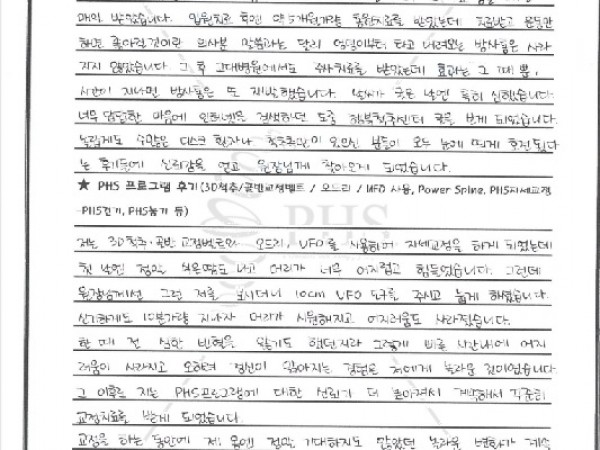 매일 받았습니다. 입원치료 후엔 약 5개월가량 통원치료를 받았는데 치료받고 운동만
하면 좋아질것이란 의사분 말씀과는 달리 엉덩이부터 타고 내려오는 방사통은 사라
지지 않았습니다. 그 후 고대병원에서도 주사치료를 받았는데 효과는 그 때 뿐,
시간이 지나면 방사통은 또 재발했습니다. 날씨가 궂은 날엔 특히 심했습니다.
너무 답답한 마음에 인터넷을 검색하던 도중 척추센터 글을 보게 되었습니다.
놀랍게도 수많은 디스크 환자나 척추측만이 있으신 분들이 모두 눈에 띄게 호전됐다
는 후기들에 신뢰감을 얻고 원장님께 찾아오게 되었습니다.
★ PHS 프로그램 후기(3D척추/골반교정벨트 / 오드리 / UFO 사용, Power Spine, PHS자세교정
-PHS걷기, PHS눕기 등)
PHS
저는 3D척추·골반 교정벨트와 오드리, UFO를 사용하여 자세교정을 하게 되었는데
첫 날엔 정말 식은땀도 나고 머리가 너무 어지럽고 힘들었습니다. 그런데
원장님께선 그런 저를 보시더니 10cm UFO 도구를 주시고 눕게 하셨습니다.
신기하게도 10분가량 지나자 머리가 시원해지고 어지러움도 사라졌습니다.
한 때 전 심한 빈혈을 앓기도 했던지라 그렇게 빠른 시간내에 어지
러움이 사라지고 오히려 정신이 맑아지는 경험은 저에게 놀라운 것이었습니다.
그 이후로 저는 PHS프로그램에 대한 신뢰가 더 높아져서 계속해서 꾸준히
교정치료를 받게 되었습니다.
교정을 하는 동안에 제 몸엔 정말 기대하지도 않았던 놀라운 변화가 계속